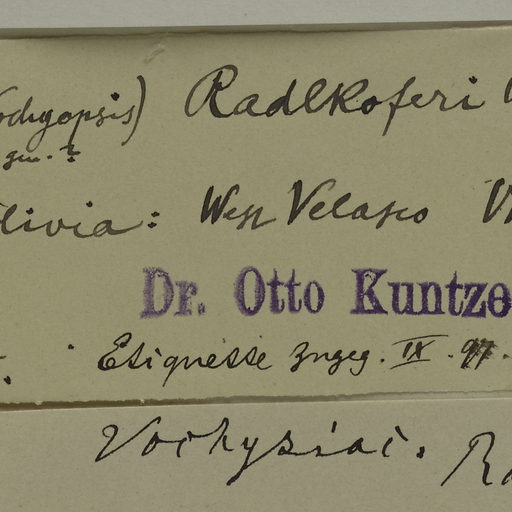 ochyopsis) Radlkoferi
gen.?
livia: West Velasco
Dr. Otto Kuntze
Etiquette zugeg. IX. 97.
Vochysiac. Ra